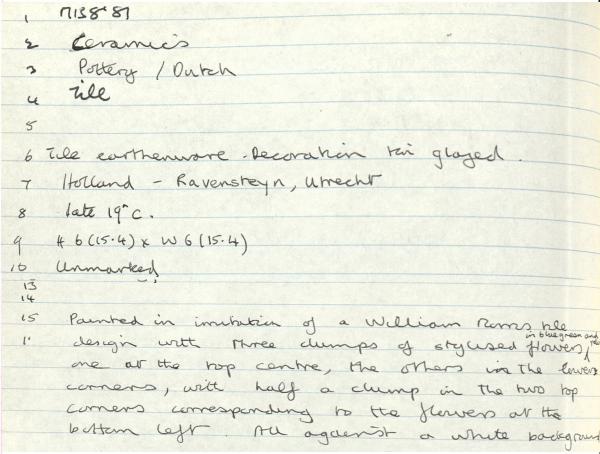 1 M138'87
2 Ceramics
3 Pottery / Dutch
4 Tile
5
6 Tile earthenware. Decoration tin glazed.
7 Holland - Ravensteyn, Utrecht
8 late 19th C.
9 H 6 (15.4) x W 6 (15.4)
10 Unmarked
13
14
15 Painted in imitation of a William Morris tile
in blue green and
design with three clumps of stylised flowers,
one at the top centre, the others in the lower
corners, with half a clump in the two top
corners corresponding to the flowers at the
bottom left. All against a white background